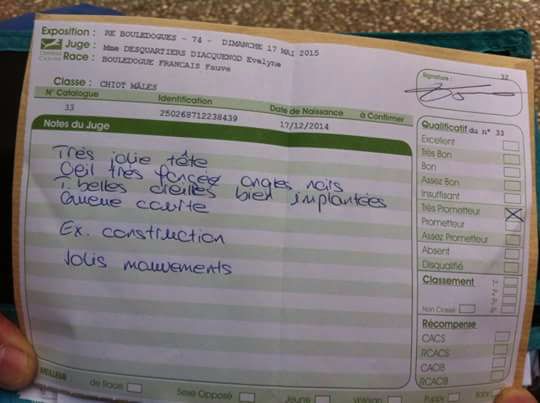 Exposition : RE BOULEDOGUES - 74 - DIMANCHE 17 MAI 2015
Juge : Mme DESQUARTIERS DIACQUENOD Evelyne
Race : BOULEDOGUE FRANCAIS Fauve
Signature :
32
Classe : CHIOT MÂLES
N° Catalogue Identification Date de Naissance à Confirmer
33 250268712238439 17/12/2014
Notes du Juge
Très jolie tête
Oeil très foncée ongles noirs
T. belles oreilles bien implantées
Queue courte
Ex. construction
Jolis mouvements
Qualificatif du n° 33
Excellent
Très Bon
Bon
Assez Bon
Insuffisant
Très Prometteur X
Prometteur
Assez Prometteur
Absent
Disqualifié
Classement
Non Classé
Récompense
CACS
RCACS
CACIB
RCACIB
MEILLEUR de Race Sexe Opposé Jeune Vétéran Puppy Baby